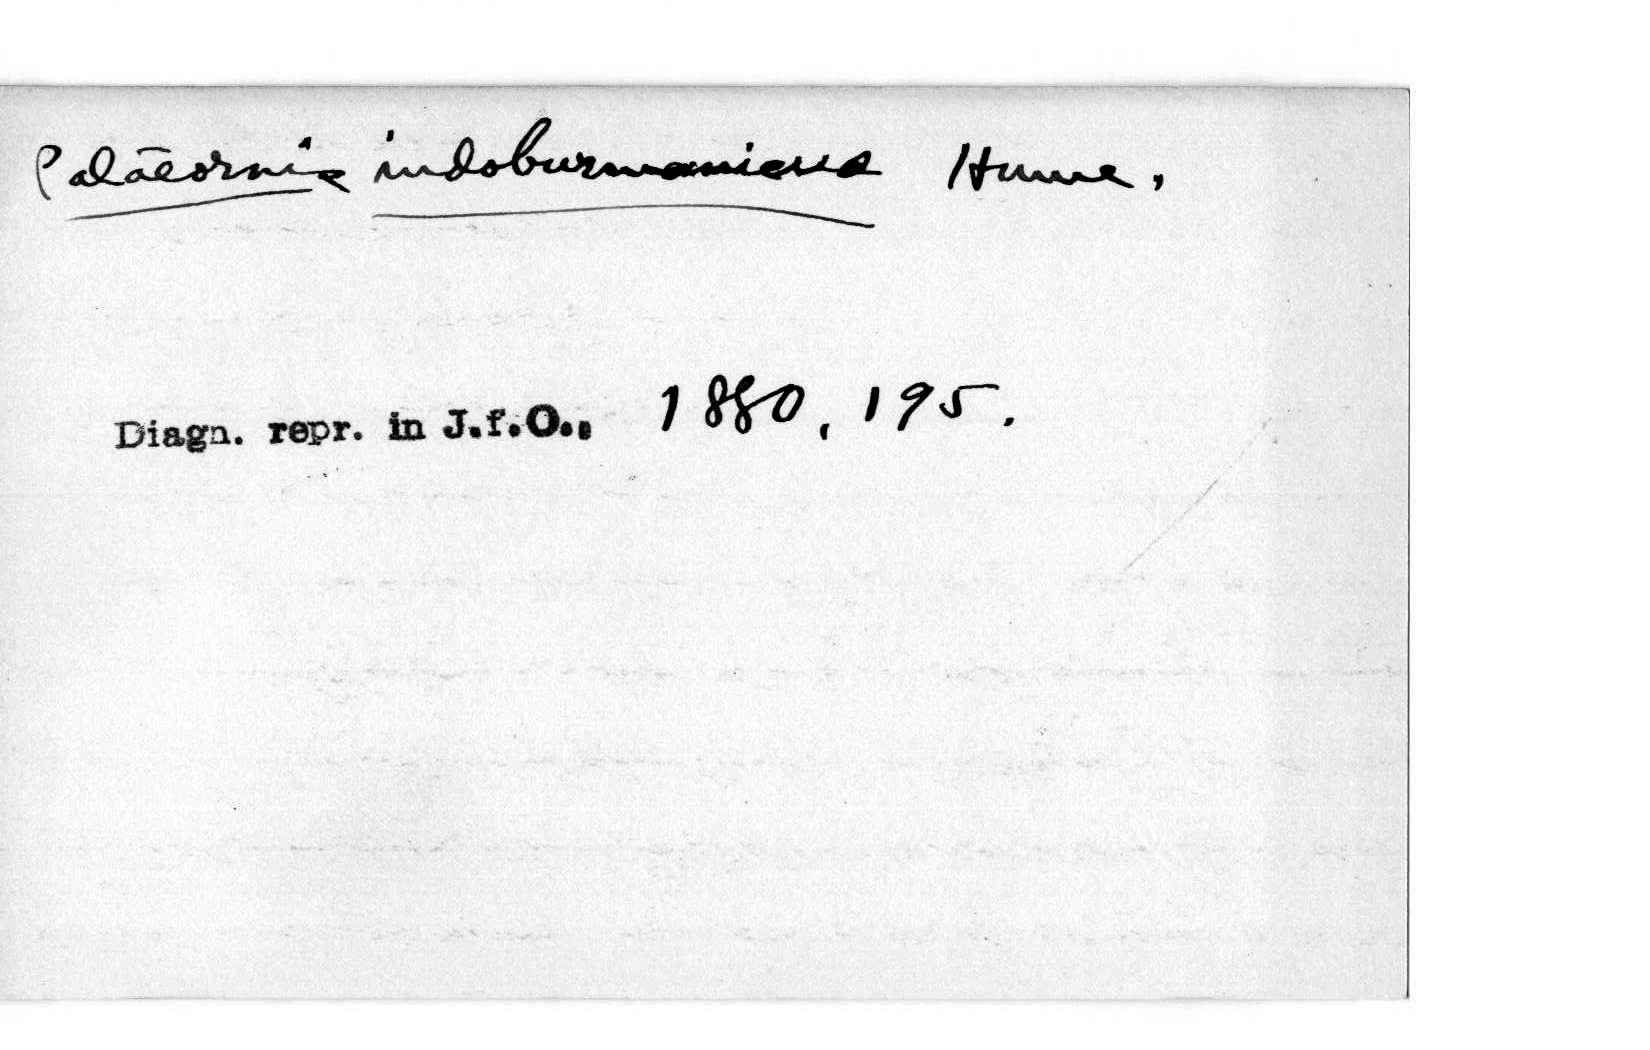 Palaeornis indoburmanicus Hume.
Diagn. repr. in J.f.O., 1880, 195.